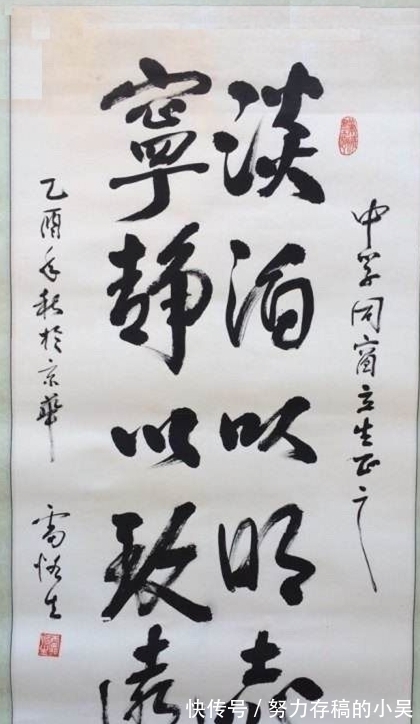 中学同窗立生正之
淡泊以明志
寧静以致遠
乙酉年秋於京華
雷恪生
快传号/努力存稿的小吴